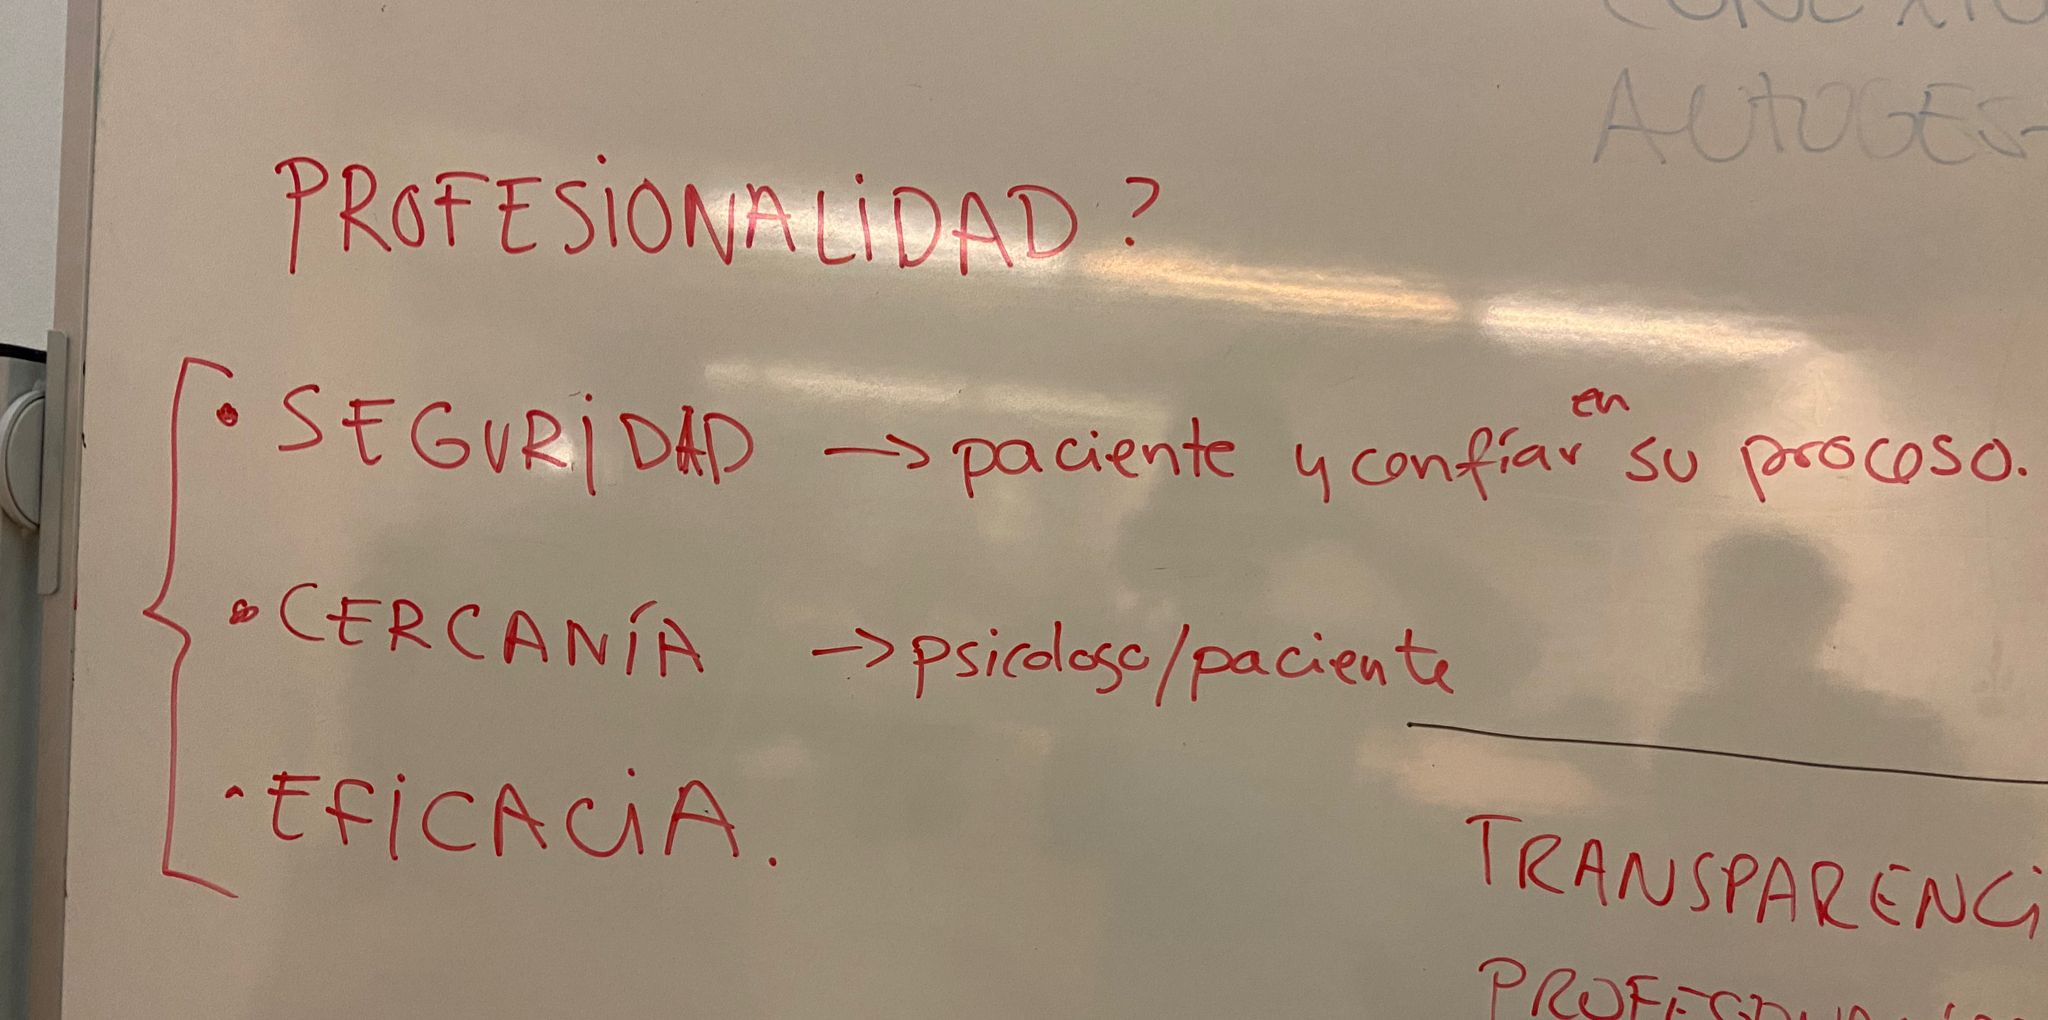 AUTOGES
PROFESIONALIDAD?
• SEGURIDAD → paciente y confíar en su proceso.
• CERCANÍA → psicologo/paciente
• EFICACIA.
TRANSPARENCI